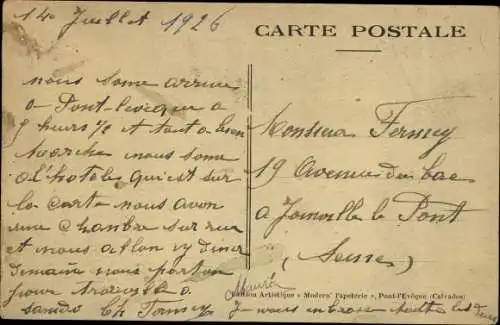 14 Juillet 1926
CARTE POSTALE
nous some arriver
a Pont-leveque a
9 heurs ½ et tout a bien
marcher nous some
a l'hotele qui est sur
la carte nous avon
une chambre sur rue
et nous allon y diner
demain nous parton
pour trouville a
samdo Ch Fermey
Monsieur Fermey
19 Avenue du bac
a Joinville le Pont
(Seine)
Edition Artistique « Modern' Papeterie », Pont-l'Evêque (Calvados)
Maurice